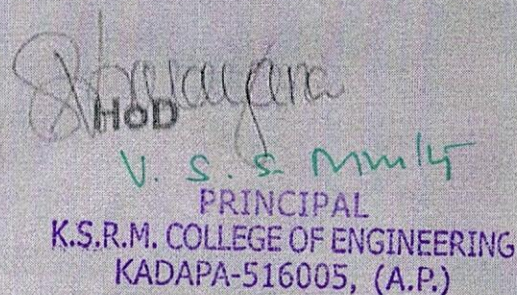 HOD
V. S. S. Murty
PRINCIPAL
K.S.R.M. COLLEGE OF ENGINEERING
KADAPA-516005, (A.P.)